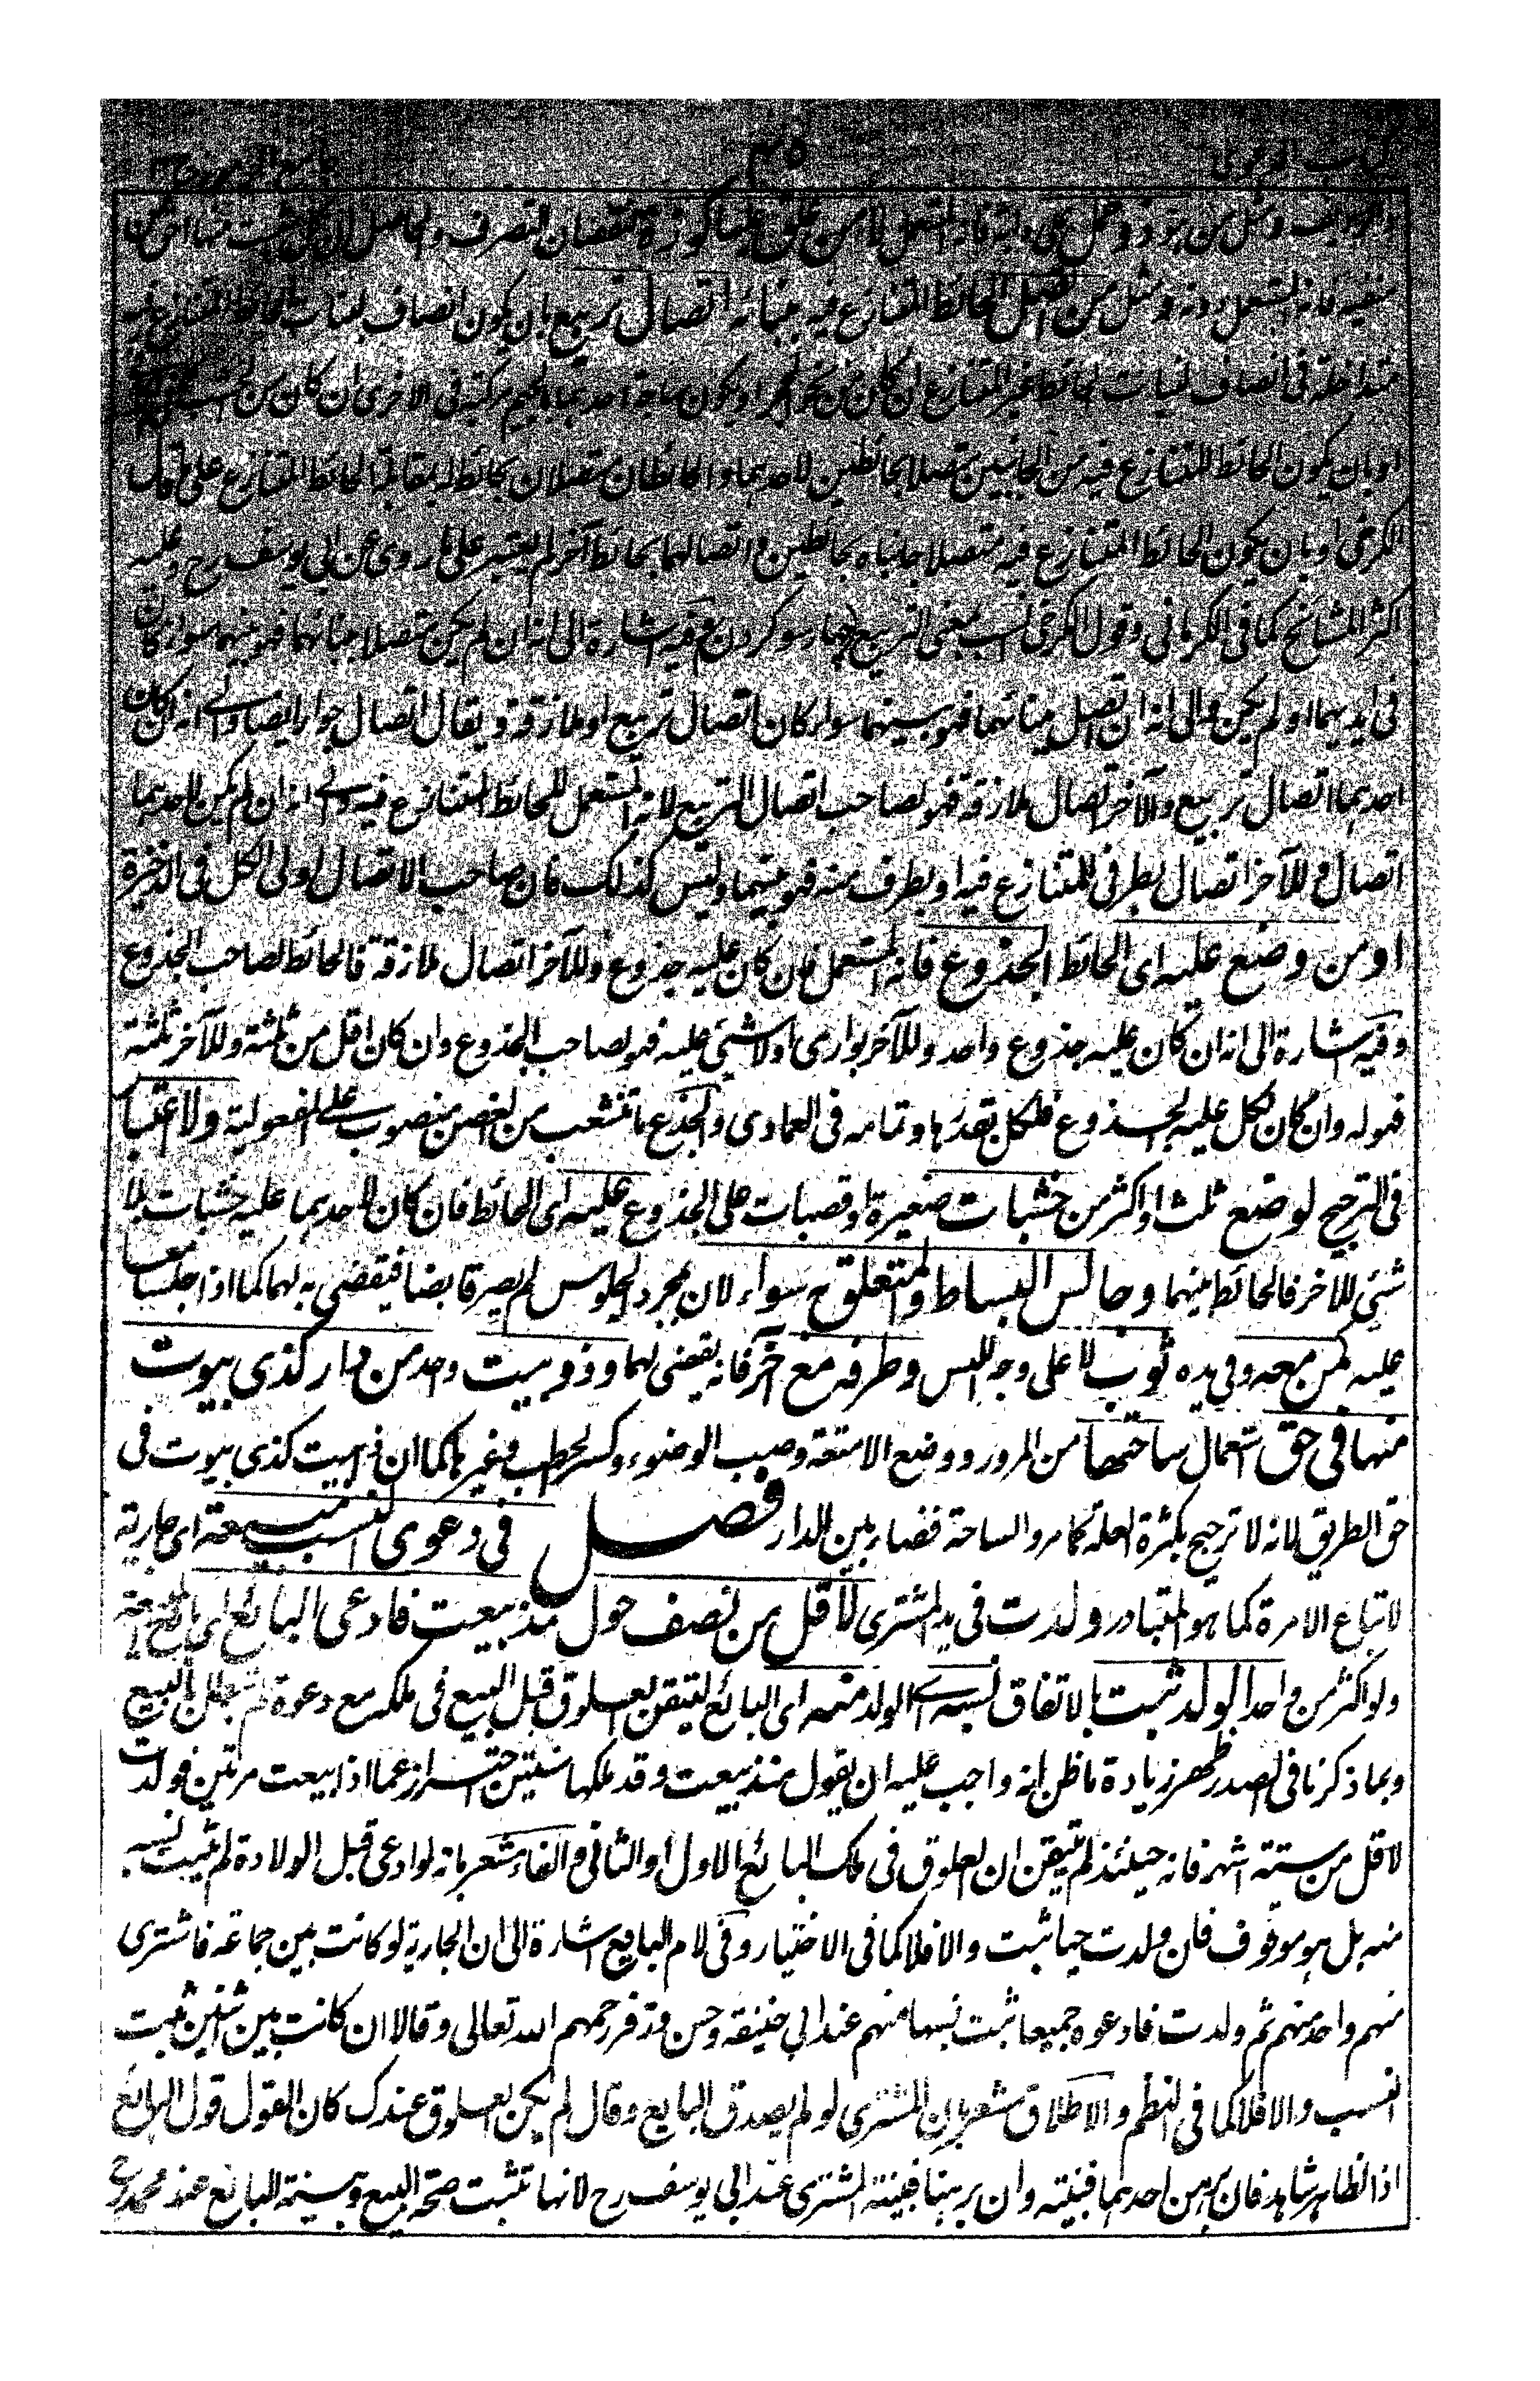 كتاب الدعوى ٣٥ جامع الرموز ج٣
ومثل من هو ذو حمل على دابة فانه المستعمل لا من علق عليها كوزه لنقصان التصرف والحاصل ان
فانه المستعمل دونه ومثل من اتصل الحائط المتنازع فيه ببنائه اتصال تربيع بان يكون انصاف لبنات الحائط المتنازع فيه
متداخلة فى انصاف لبنات الحائط غير المتنازع ان كان من نحو الحجر او يكون ساجة احدهما مركبة فى الاخرى ان كان من الخشب
او بان يكون الحائط المتنازع فيه من الجانبين متصلا بحائطين لاحدهما والحائطان متصلان بحائط له بمقابلة الحائط المتنازع على ما قال
الكرخى او بان يكون الحائط المتنازع فيه متصلا جانباه بحائطين واتصالهما بحائط آخر لم يعتبر على ما روى عن ابى يوسف رح وعليه
اكثر المشائخ كما فى الكرمانى وقول الكرخى انسب بمعنى التربيع چهار سو كردن وفيه اشارة الى انه ان لم يكن متصلا ببنائهما فهو بينهما سواء كان
فى ايديهما او لم يكن والى انه ان اتصل ببنائهما فهو بينهما سواء كان اتصال تربيع او ملازقة ويقال اتصال جوار ايضا والى انه ان كان
احدهما اتصال تربيع والآخر اتصال ملازقة فهو لصاحب اتصال التربيع لانه المستعمل للحائط المتنازع فيه والى انه ان لم يكن لاحدهما
اتصال وللآخر اتصال بطرفى المتنازع فيه او بطرف منه فهو بينهما وليس كذلك فان صاحب الاتصال اولى الكل فى الذخيرة
او من وضع عليه اى الحائط الجذوع فانه المستعمل فان كان عليه جذوع وللآخر اتصال ملازقة فالحائط لصاحب الجذوع
وفيه اشارة الى انه ان كان عليه جذوع واحد وللآخر بوارى او لا شئ عليه فهو لصاحب الجذوع وان كان اقل من ثلثة وللآخر ثلثة
فهو له وان كان لكل عليه الجذوع فلكل بقدرها وتمامه فى العمادى والجذع ما تشعب من الغصن منصوب على المفعولية ولا اعتبار
فى الترجيح لوضع ثلث او اكثر من خشبات صغيرة او قصبات على الجذوع عليه اى الحائط فان كان لاحدهما عليه خشبات بلا
شئ للآخر فالحائط بينهما وجالس البساط والمتعلق به سواء لان بمجرد الجلوس لم يصر قابضا فيقضى به لهما كما اذا جلسا
عليه كمن معه وفى يده ثوب لا على وجه اللبس وطرفه مع آخر فانه يقضى لهما وذو بيت واحد من دار كذى بيوت
منها فى حق استعمال ساحتها من المرور ووضع الامتعة وصب الوضوء وكسر الحطب وغيرها كما ان ذا بيت كذى بيوت فى
حق الطريق لانه لا ترجيح بكثرة العلة كما مر والساحة فضاء بين الدار فصل فى دعوى النسب مبيعة اى جارية
لاتباع الامرة كما هو المتبادر ولدت فى يد المشترى لاقل من نصف حول مذ بيعت فادعى البائع
ولو اكثر من واحد الولد ثبت بالاتفاق نسبه اى الولد منه اى البائع لتيقن العلوق قبل البيع فى ملكه مع دعوة لم تبطل بالبيع
وبما ذكرنا فى الصدر ظهر زيادة ما ظن انه واجب عليه ان يقول منذ بيعت وقد ملكها سنتين احترازا عما اذا بيعت مرتين فولدت
لاقل من ستة اشهر فانه حينئذ لم يتيقن ان العلوق فى ملك البائع الاول او الثانى والفاء مشعر بانه لو ادعى قبل الولادة لم يثبت نسبه
منه بل هو موقوف فان ولدت حيا ثبت والا فلا كما فى الاختيار وفى لام البايع اشارة الى ان الجارية لو كانت بين جماعة فاشترى
منهم واحد منهم ثم ولدت فادعوه جميعا ثبت نسبها منهم عند ابي حنيفة وحسن وزفر رحمهم الله تعالى وقالا ان كانت بين اثنين ثبت
النسب والا فلا كما فى النظم والاطلاق مشعر بان المشترى لو لم يصدق البايع وقال لم يكن العلوق عندك كان القول قول البائع
اذ الظاهر شاهد فان برهن احدهما فبينته وان برهنا فبينة المشترى عند ابى يوسف رح لانها تثبت صحة البيع وبينة البائع عند محمد رح